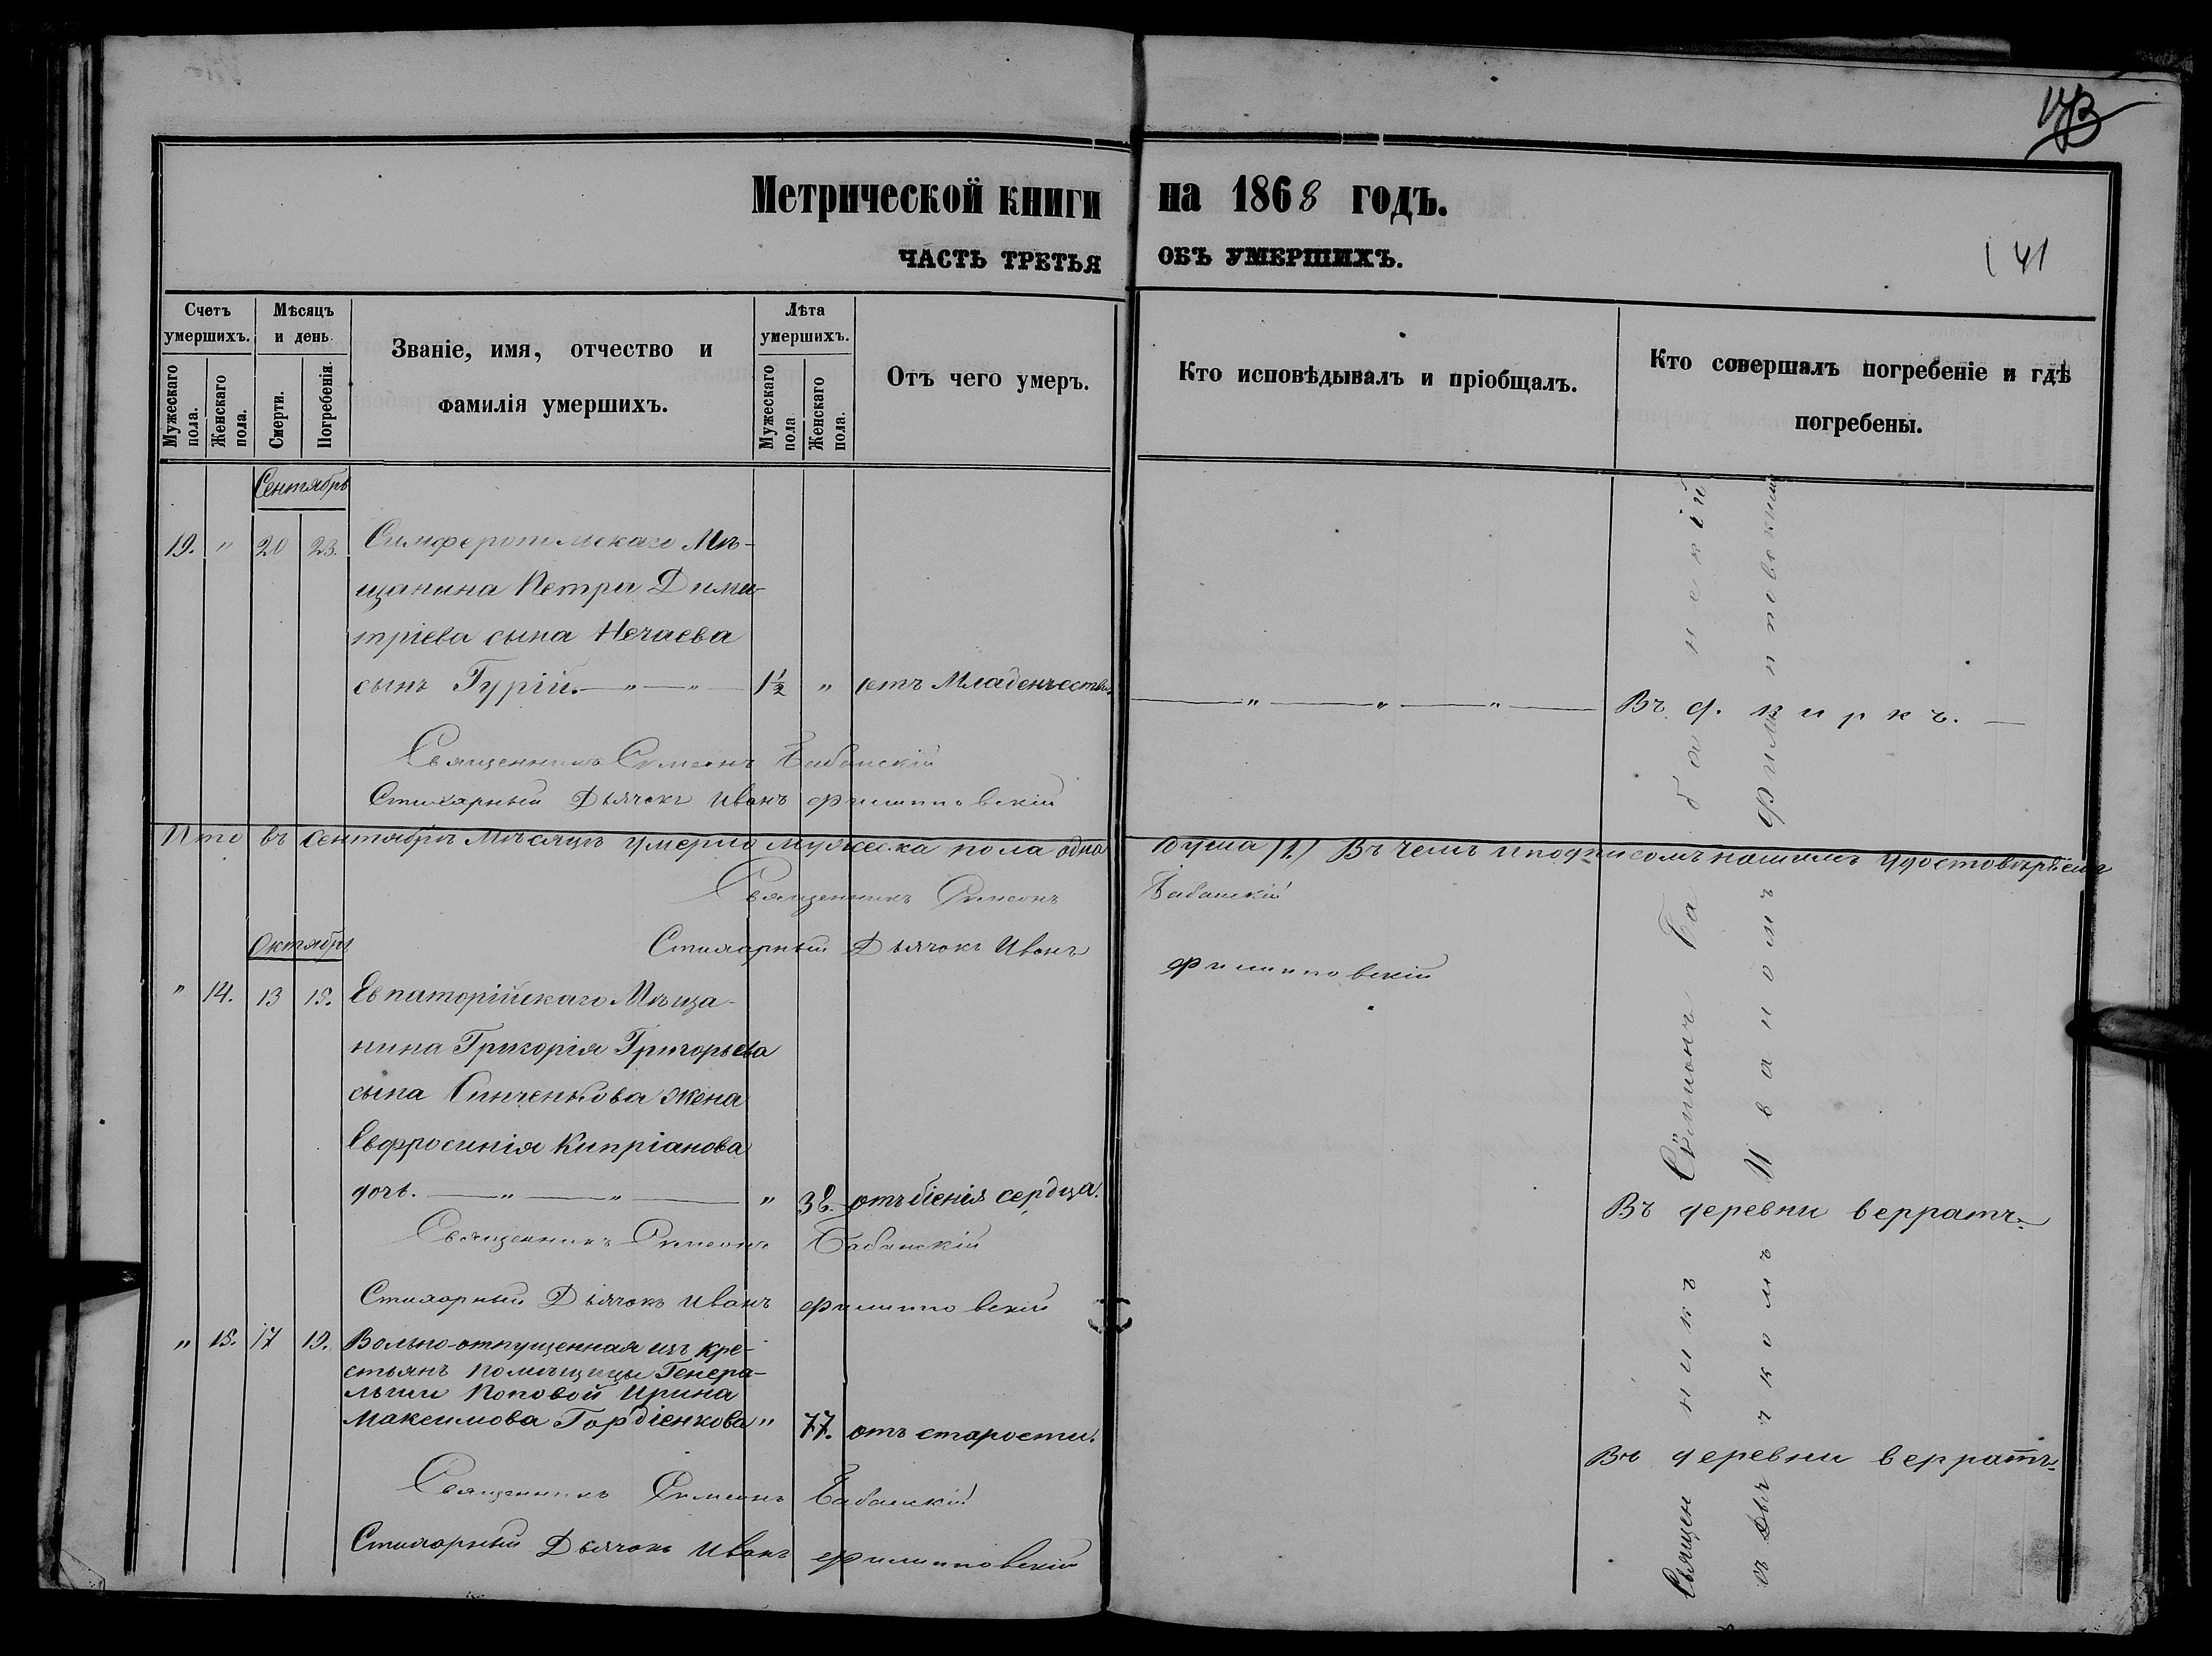 Метрической книги на 1868 годъ.
ЧАСТЬ ТРЕТЬЯ ОБЪ УМЕРШИХЪ.
141
Счетъ умершихъ.
Мужескаго пола.
Женскаго пола.
Мѣсяцъ и день
Смерти.
Погребенія.
Званіе, имя, отчество и фамилія умершихъ.
Лѣта умершихъ.
Мужескаго пола
Женскаго пола.
Отъ чего умеръ.
Кто исповѣдывалъ и пріобщалъ.
Кто совершалъ погребеніе и гдѣ погребены.
Сентябрь
19. " 20 23. Симферопольскаго Мѣ-
щанина Петра Дими-
тріева сына Нечаева
сынъ Гурій. — " — " — 1½ " отъ Младенчества — " — " — " — Въ д. киркъ. —
Священникъ Симеонъ Бабанскій
Стихарный Дьячокъ Иванъ Филипповскій
Итого въ Сентябрѣ Мѣсяцѣ умерло мужеска пола одна душа /1./ Въ чемъ и подписомъ нашимъ удостовѣряемъ
Священникъ Симеонъ Бабанскій
Стихарный Дьячокъ Иванъ Филипповскій
Октябрь
" 14. 13 15. Евпаторійскаго Мѣща-
нина Григорія Григорьева
сына жена
Евфросинія Кипріанова
дочь. — " — " — " 38. отъ біенія сердца. Въ деревни верратъ.
Священникъ Симеонъ Бабанскій
Стихарный Дьячокъ Иванъ Филипповскій
" 15. 17 19. Вольно-отпущенная изъ кре-
стьянъ помѣщицы Генера-
льши Поповой Ирина
Максимова Гордіенкова " 77. отъ старости. Въ деревни верратъ.
Священникъ Симеонъ Бабанскій
Стихарный Дьячокъ Иванъ Филипповскій
Священникъ Симеонъ Бабанскій
съ Дьячкомъ Иваномъ Филипповскимъ